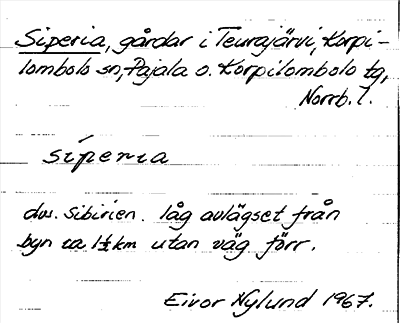 Siperia, gårdar i Teurajärvi, Korpi-
lombolo sn, Pajala o. Korpilombolo tg,
Norrb. l.
síperia
dvs. Sibirien. låg avlägset från
byn ca 1½ km utan väg förr.
Eivor Nylund 1967.